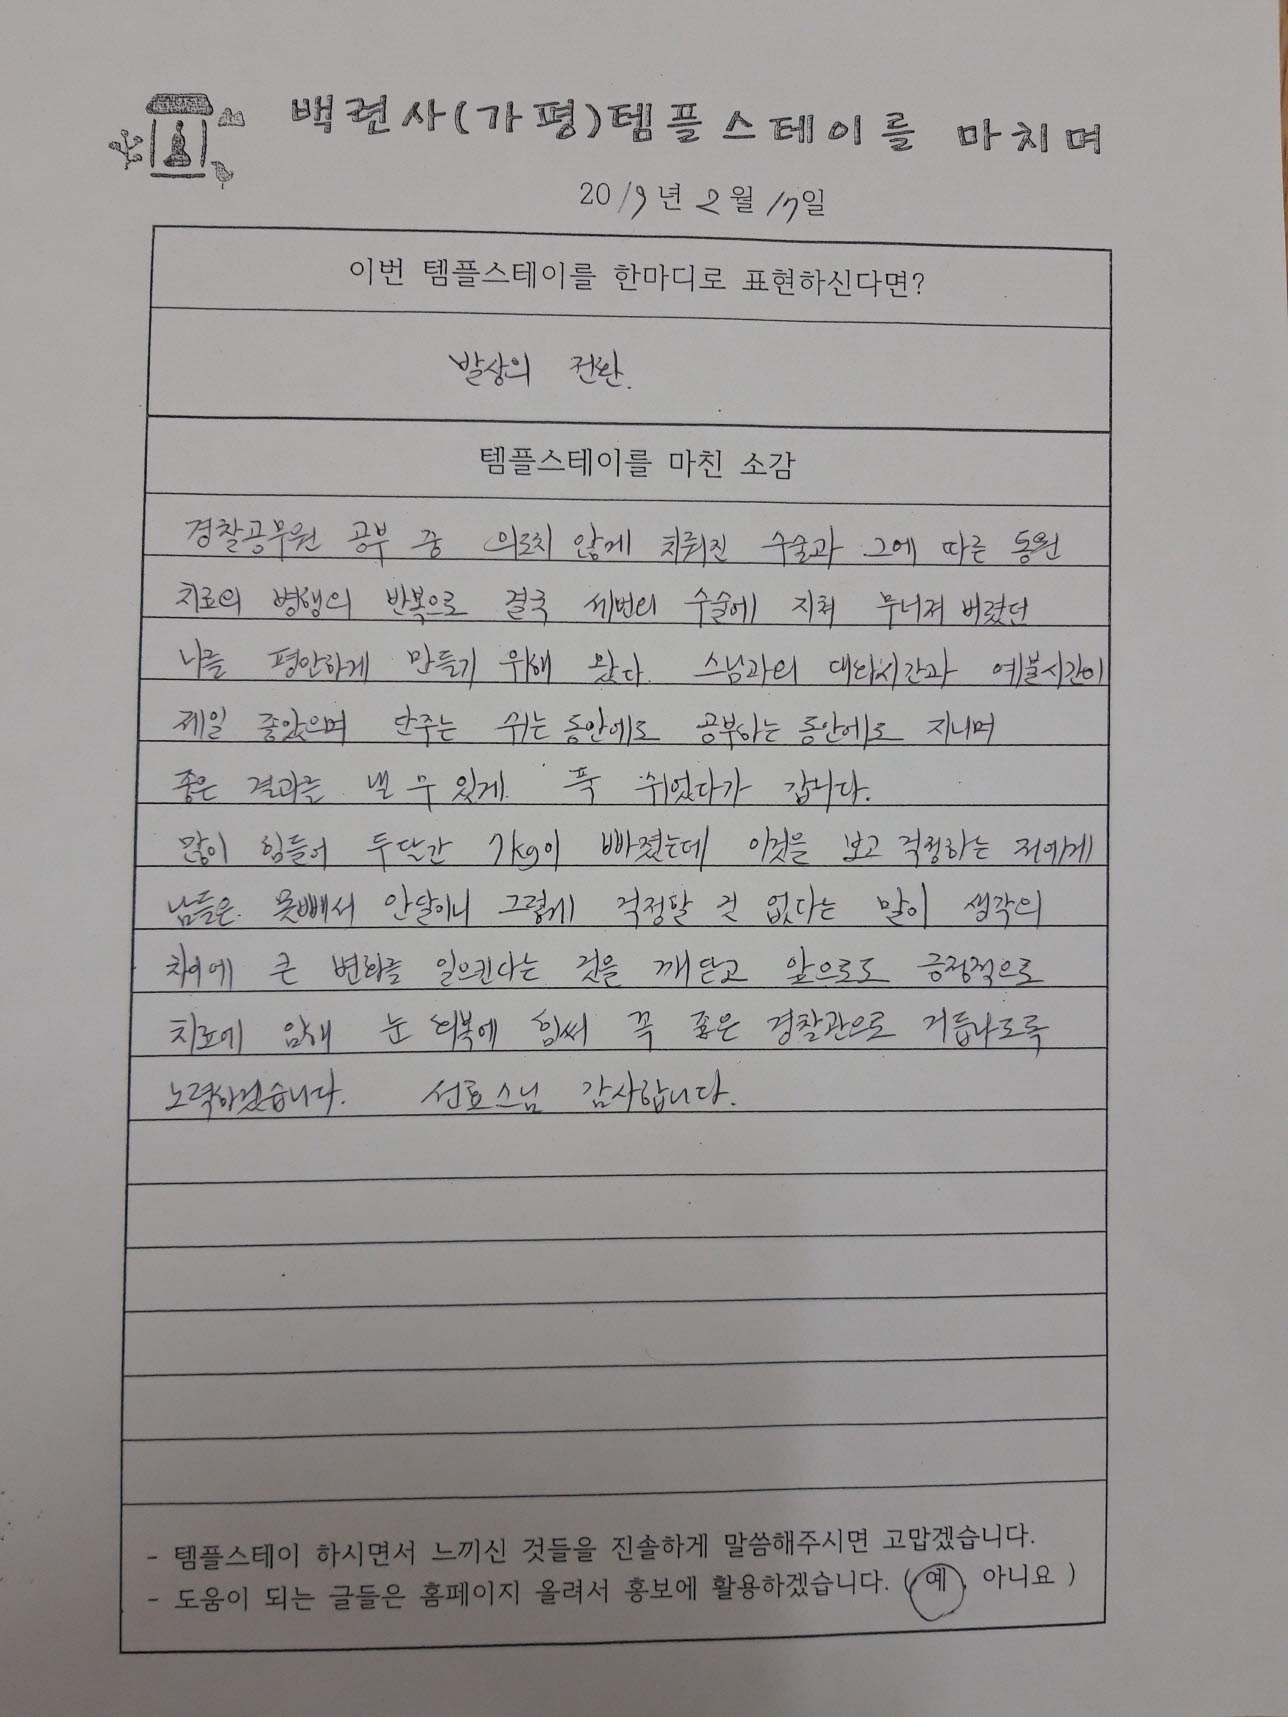 백련사(가평)템플스테이를 마치며
2019년 2월 17일
이번 템플스테이를 한마디로 표현하신다면?
발상의 전환.
템플스테이를 마친 소감
경찰공무원 공부 중 의도치 않게 치뤄진 수술과 그에 따른 통원
치료의 병행의 반복으로 결국 세번의 수술에 지쳐 무너져 버렸던
나를 평안하게 만들기 위해 왔다. 스님과의 대화시간과 예불시간이
제일 좋았으며 단주는 쉬는 동안에도 공부하는 동안에도 지니며
좋은 결과를 낼 수 있게 푹 쉬었다가 갑니다.
많이 힘들어 두달간 7kg이 빠졌는데 이것을 보고 걱정하는 저에게
남들은 못빼서 안달이니 그렇게 걱정할 것 없다는 말이 생각의
차이에 큰 변화를 일으킨다는 것을 깨닫고 앞으로도 긍정적으로
치료에 임해 눈 회복에 힘써 꼭 좋은 경찰관으로 거듭나도록
노력하겠습니다. 선효스님 감사합니다.
- 템플스테이 하시면서 느끼신 것들을 진솔하게 말씀해주시면 고맙겠습니다.
- 도움이 되는 글들은 홈페이지 올려서 홍보에 활용하겠습니다. (예, 아니요 )